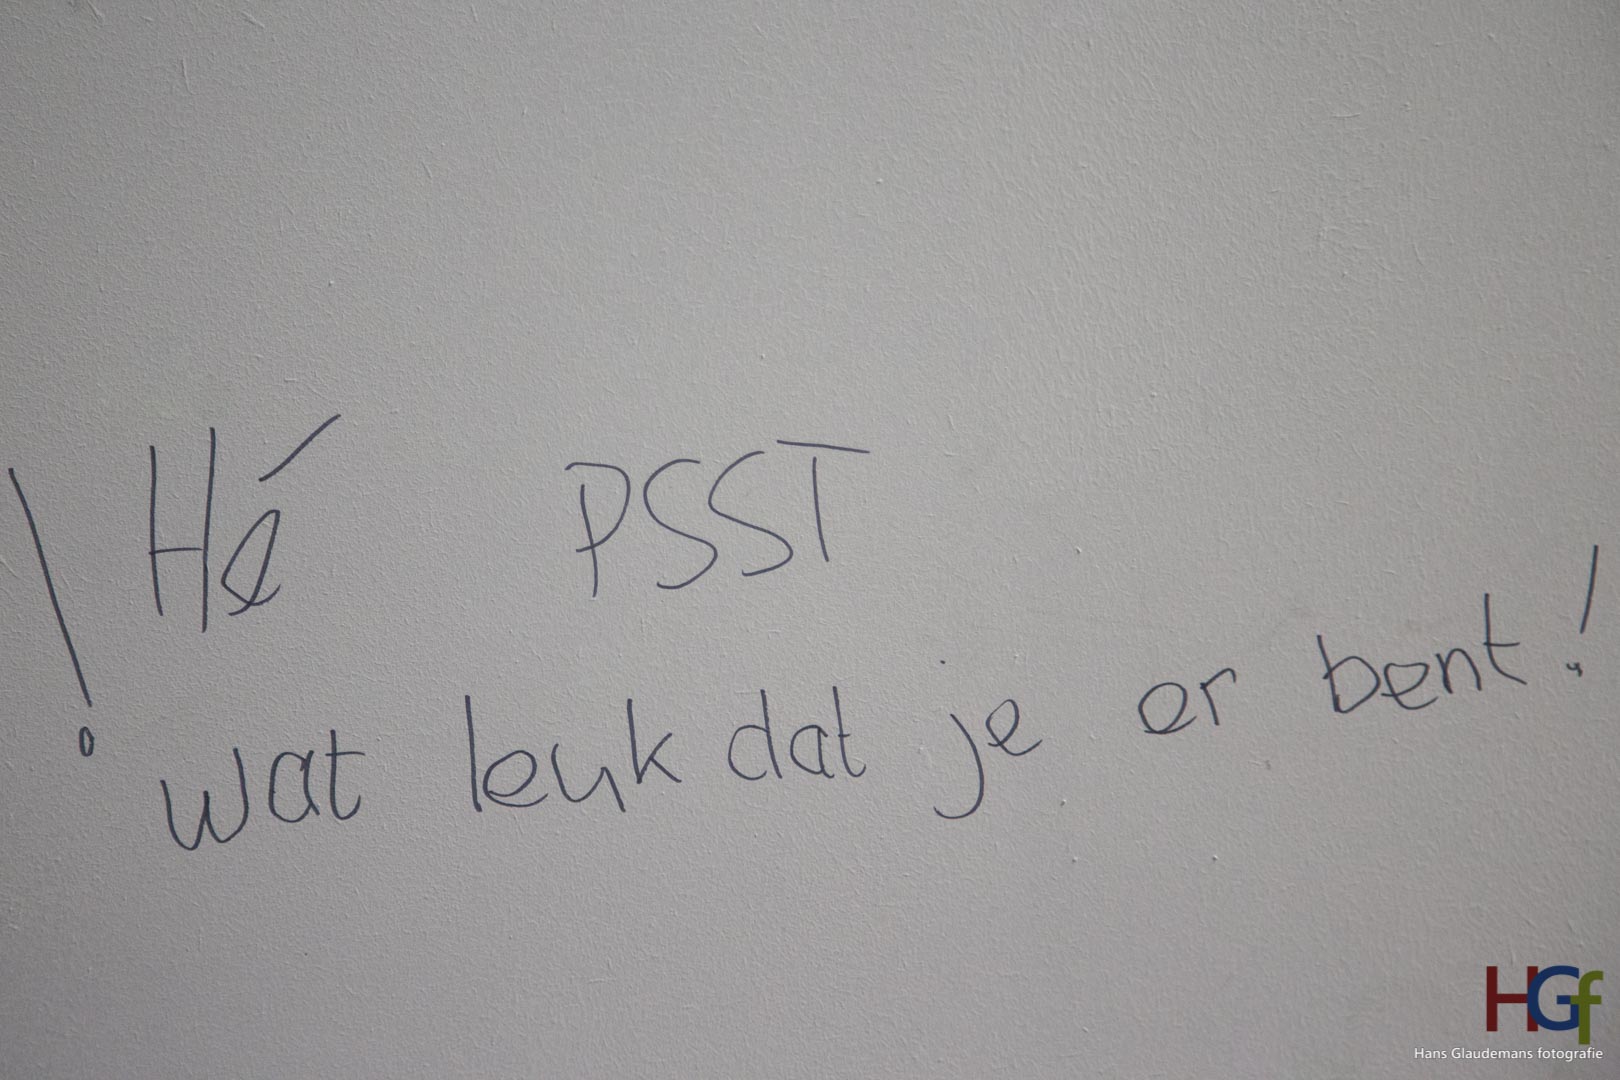 ! Hé PSST
wat leuk dat je er bent!
HGf
Hans Glaudemans fotografie